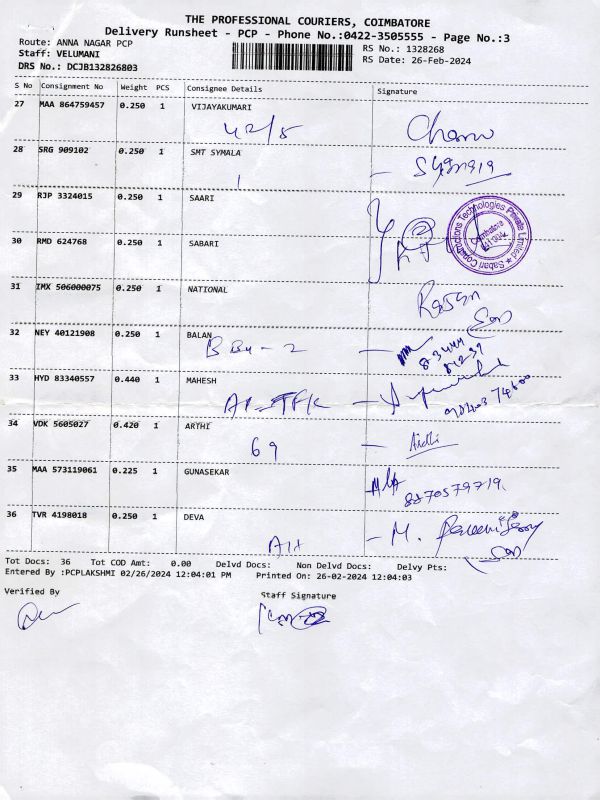 THE PROFESSIONAL COURIERS, COIMBATORE
Delivery Runsheet - PCP - Phone No.:0422-3505555 - Page No.:3
Route: ANNA NAGAR PCP
RS No.: 1328268
Staff: VELUMANI
RS Date: 26-Feb-2024
DRS No.: DCJB132826803
S No Consignment No Weight PCS Consignee Details Signature
27 MAA 864759457 0.250 1 VIJAYAKUMARI
42/5
28 SRG 909102 0.250 1 SMT SYMALA
1 -
29 RJP 3324015 0.250 1 SAARI
Sabari Constructions Technologies Private Limited
Coimbatore
30 RMD 624768 0.250 1 SABARI
31 IMX 506000075 0.250 1 NATIONAL
32 NEY 40121908 0.250 1 BALAN
33 HYD 83340557 0.440 1 MAHESH
34 VDK 5605027 0.420 1 ARTHI
69 -
35 MAA 573119061 0.225 1 GUNASEKAR
8870579719
36 TVR 4198018 0.250 1 DEVA
Tot Docs: 36 Tot COD Amt: 0.00 Delvd Docs: Non Delvd Docs: Delvy Pts:
Entered By :PCPLAKSHMI 02/26/2024 12:04:01 PM Printed On: 26-02-2024 12:04:03
Verified By Staff Signature